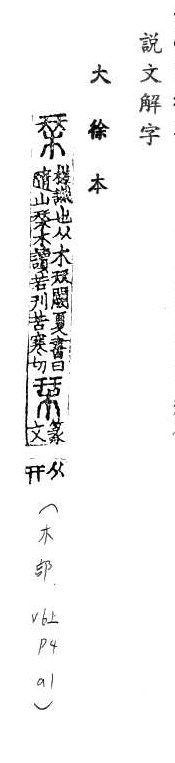 説文解字
大徐本
㮳 槎識也从木闕夏書曰
隨山㮳木讀若刊苦寒切 栞 篆
文 从
幵
(木部 v6上 p4 a1)